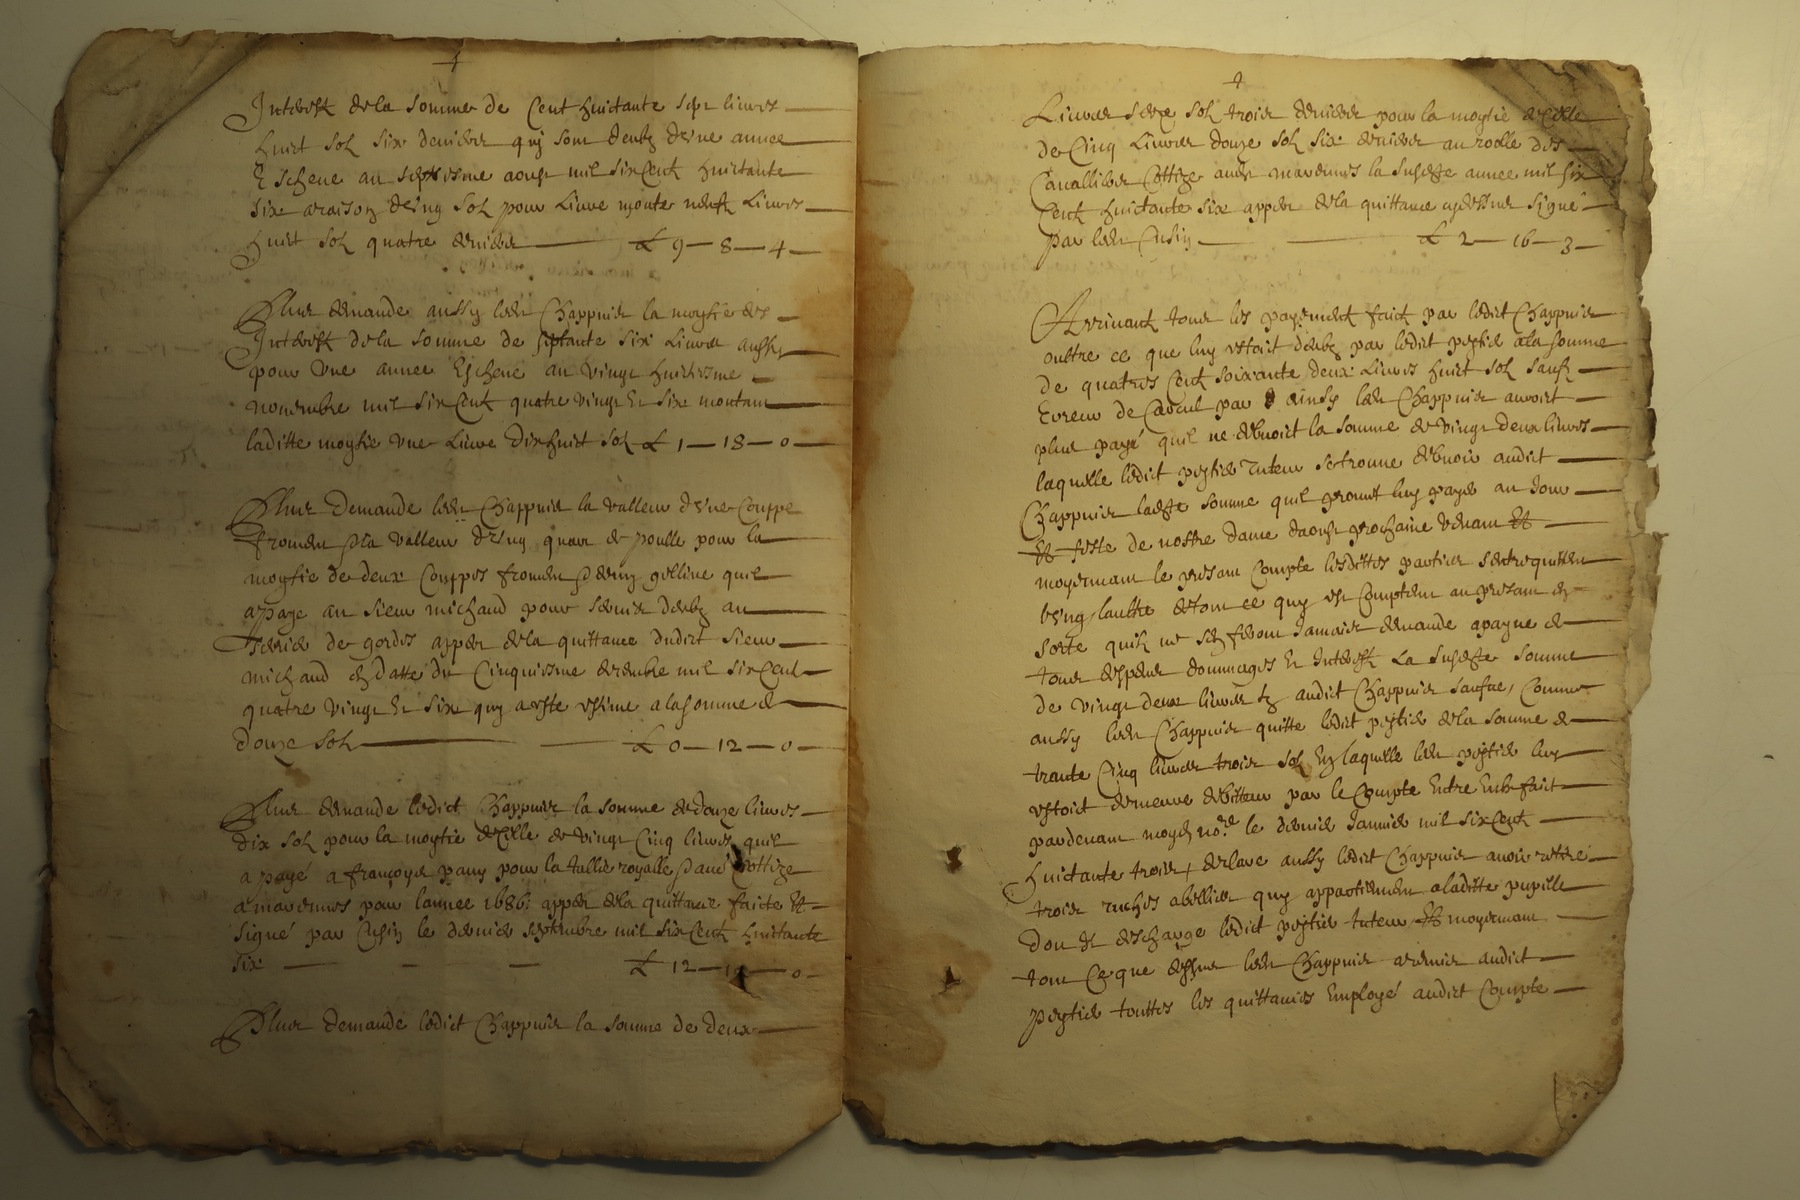 Interest de la somme de Cent huictante sept livres
huict solz six deniers quj sont deubz d'vne annee
Escheue au septiesme aoust mil six Cent huictante
six a raison d'vng solz pour Livre monte neufz Livres
huict solz quatre deniers £ 9 — 8 — 4
Plus demande aussy led. Chappuis la moytie des
Interest de la somme de septante six Livres aussy
pour vne annee Escheue au vingt huictiesme
novembre mil six Cent quatre vingt Et six montant
laditte moytie vne Livre dixhuict solz £ 1 — 18 — 0
Plus demande led. Chappuis la valleur d'vne Couppe
froment & la valleur d'vng quart de poulle pour la
moytie de deux Couppes froment & demy gelline quil
a paye au sieur michaud pour servis deubz au
de gordes apper de la quittance dudict sieur
michaud en datte du Cinquiesme decembre mil six Cent
quatre vingt Et six quy a esté estimé a la somme de
douze solz £ 0 — 12 — 0
Plus demande ledict Chappuis la somme de douze livres
dix solz pour la moytie d'Celle de vingt Cinq livres quil
a payé a françoys pour la tallie royalle Cottizé
pour l'annee 1686: apper de la quittance faicte Et
signé par Cusin le dernier septembre mil six Cent huictante
six £ 12 — 0
Plus demande ledict Chappuis la somme de deux
Livres seze solz trois deniers pour la moytie d'Celle
de Cinq Livres douze solz six deniers au rolle des
Cottizé la susditte annee mil six
Cent huictante six apper de la quittance cydessus signé
par led. Cusin £ 2 — 16 — 3
Arrivantz tous les payementz faictz par ledict Chappuis
oultre ce que luy estoit deubz par ledict peytie a la somme
de quatres Cent soixante deux livres huict solz saufz
Erreur de Calcul par ainsy led. Chappuis auroit
plus payé quil ne debvoict la somme de vingt deux livres
laquelle ledict peytie tuteur se trouve debvoir audict
Chappuis laditte somme quil promet luy payer au jour
Et feste de nostre dame d'aoust prochaine venant Et
moyennant le present Compte lesdittes parties sentrequittent
l'vng l'aultre de tout ce quy est Comptenu au present de
sorte quilz ne sen feront jamais demande a payne de
tous despens dommages Et Interestz La susditte somme
de vingt deux livres audict Chappuis saufue, Comme
aussy led. Chappuis quitte ledict peytie de la somme de
trante Cinq livres trois solz En laquelle led. peytie luy
estoict demeuré debitteur par le Compte Entre Eulx faict
pardevant moyd. no.re le dernier janvier mil six Cent
huictante trois, declare aussy ledict Chappuis avoir retiré
trois ruches abellies quy appartiennent a laditte pupille
dont Et descharge ledict peytie tuteur Et moyennant
tout Ce que dessus led. Chappuis a remis audict
peytie touttes les quittances Employé audict Compte